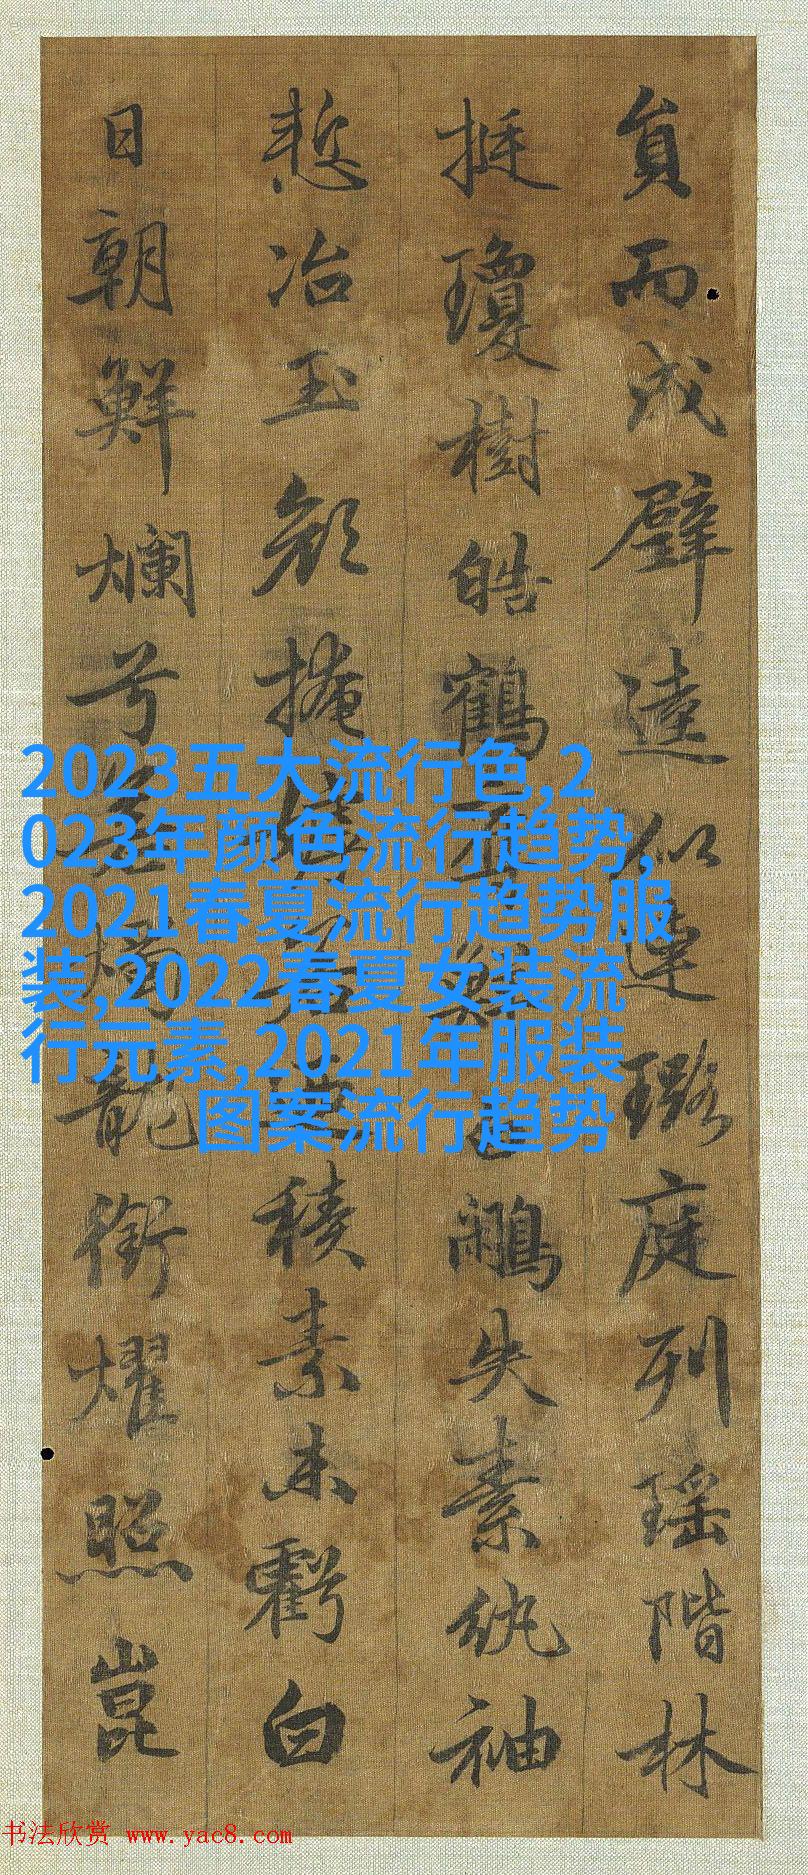 員而成璧逵似連璐庭列瑶階林
挺瓊樹皓鶴鮮鷳失素紈袖
慙冶玉顔掩積素未虧白
日朝鮮爛兮龍銜耀照崑
2023五大流行色,2
023年颜色流行趋势,
2021春夏流行趋势服
装,2022春夏女装流
行元素,2021年服装
图案流行趋势
书法欣赏 www.yac8.com